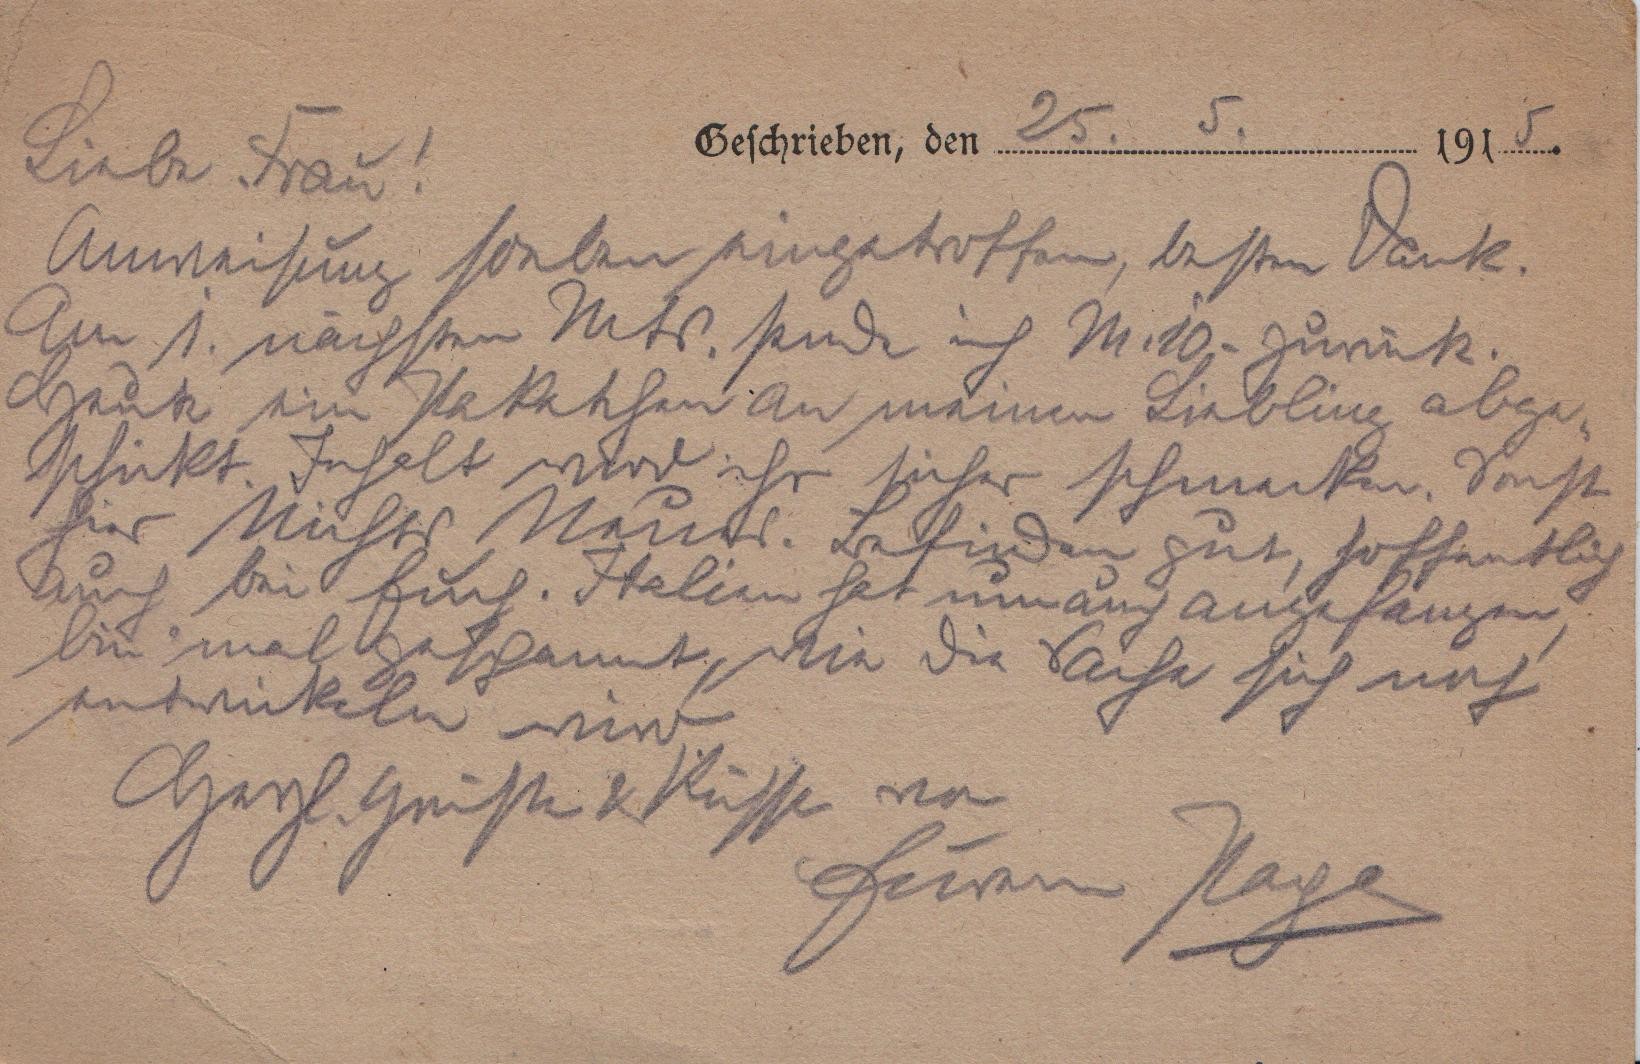 Geschrieben, den 25. 5. 1915.
Liebe Frau!
Anweisung soeben eingetroffen, besten Dank.
Am 1. nächsten Mts. sende ich M. 10.- zurück.
Heute ein Paketchen an meinen Liebling abge-
schickt. Inhalt wird ihr sicher schmecken. Sonst
hier Nichts Neues. Befinden gut, hoffentlich
auch bei Euch. Italien hat nun auch angefangen,
bin mal gespannt, wie die Sache sich noch
entwickeln wird.
Herzl. Grüße & Küsse von
Eurem Papa